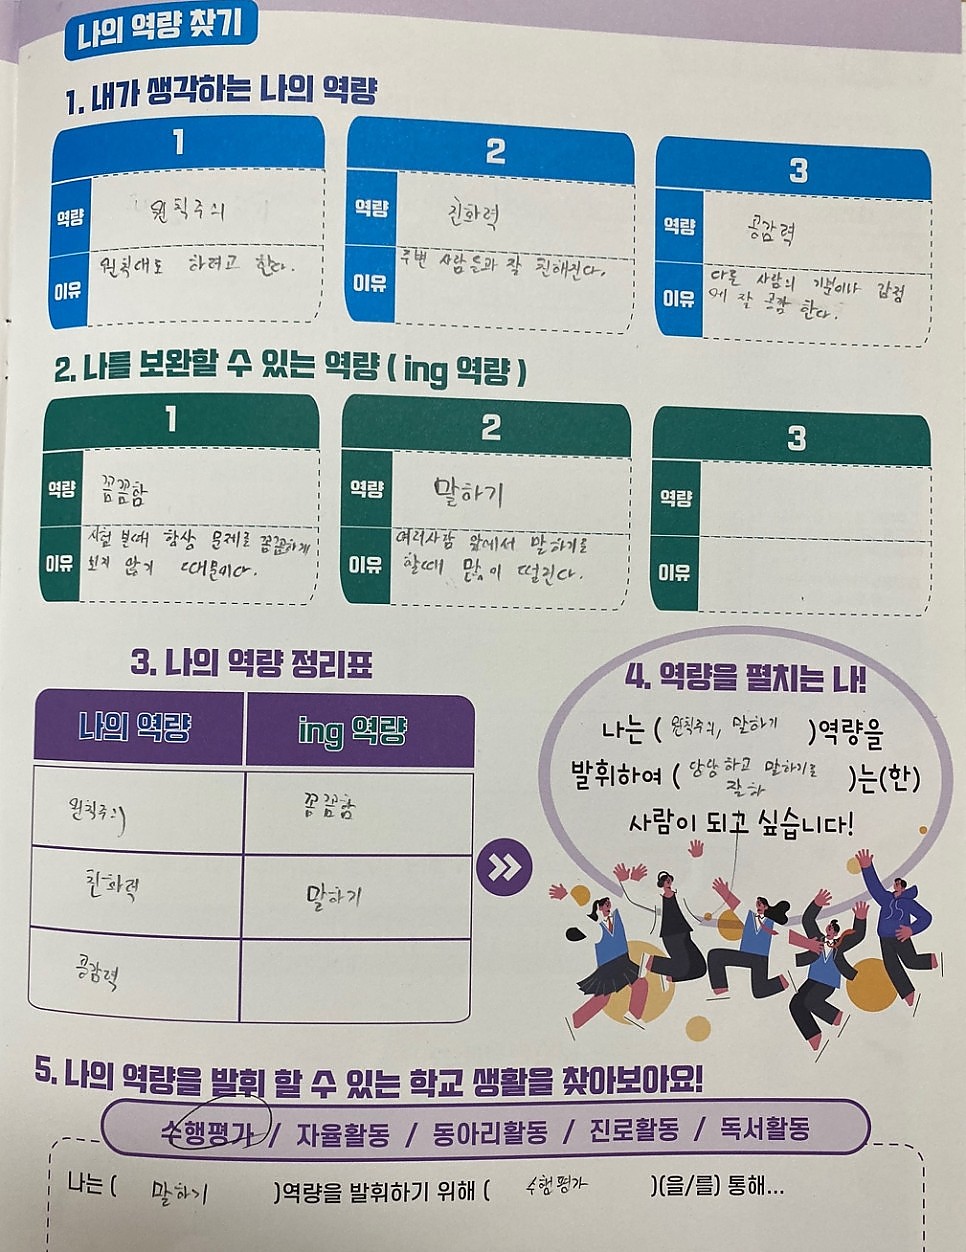 나의 역량 찾기
1. 내가 생각하는 나의 역량
1
역량 원칙주의
이유 원칙대로 하려고 한다.
2
역량 친화력
이유 주변 사람들과 잘 친해진다.
3
역량 공감력
이유 다른 사람의 기분이나 감정
에 잘 공감 한다.
2. 나를 보완할 수 있는 역량 ( ing 역량 )
1
역량 꼼꼼함
이유 시험 볼때 항상 문제를 꼼꼼하게
보지 않기 때문이다.
2
역량 말하기
이유 여러사람 앞에서 말하기를
할때 많이 떨린다.
3
역량
이유
3. 나의 역량 정리표
나의 역량 ing 역량
원칙주의 꼼꼼함
친화력 말하기
공감력
4. 역량을 펼치는 나!
나는 ( 원칙주의, 말하기 )역량을
발휘하여 ( 당당하고 말하기를
잘하 )는(한)
사람이 되고 싶습니다!
5. 나의 역량을 발휘 할 수 있는 학교 생활을 찾아보아요!
수행평가 / 자율활동 / 동아리활동 / 진로활동 / 독서활동
나는 ( 말하기 )역량을 발휘하기 위해 ( 수행평가 )(을/를) 통해...